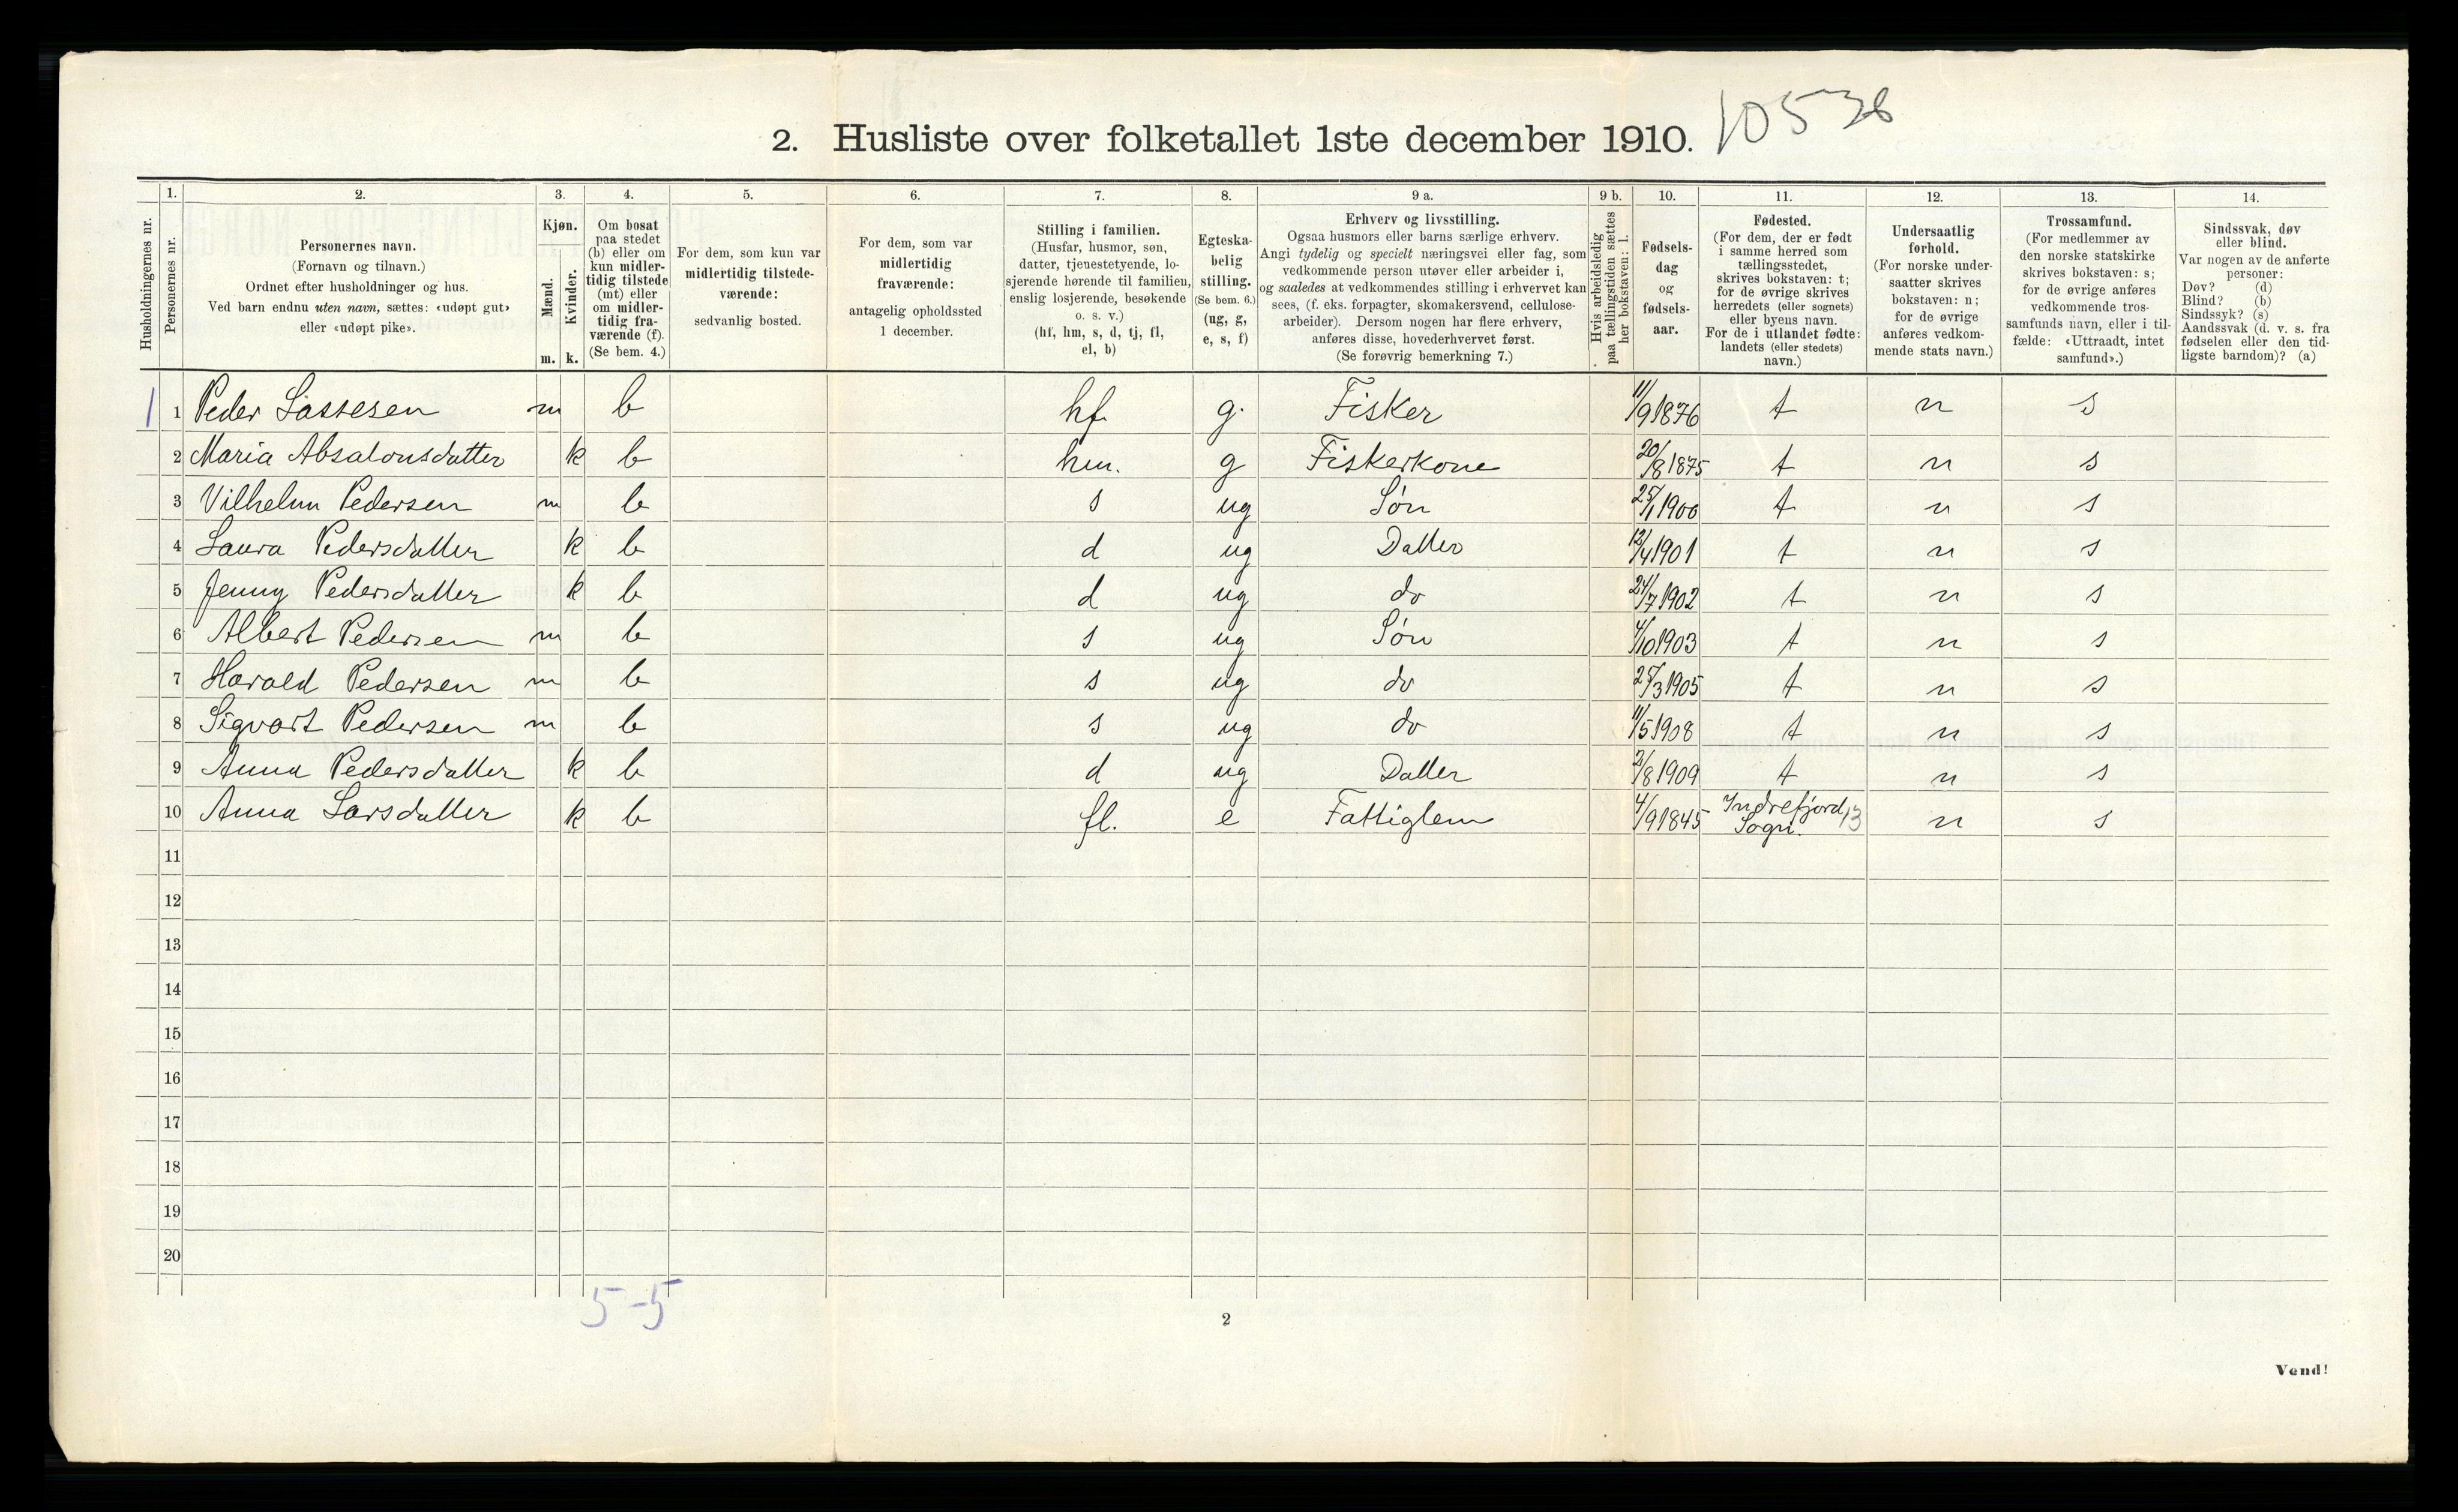 2. Husliste over folketallet 1ste december 1910. 10538
Husholdningernes nr.
1. Personernes nr.
2. Personernes navn. (Fornavn og tilnavn.) Ordnet efter husholdninger og hus. Ved barn endnu uten navn, sættes: «udøpt gut» eller «udøpt pike».
3. Kjøn. Mænd. m. Kvinder. k.
4. Om bosat paa stedet (b) eller om kun midlertidig tilstede (mt) eller om midlertidig fraværende (f). (Se bem. 4.)
5. For dem, som kun var midlertidig tilstedeværende: sedvanlig bosted.
6. For dem, som var midlertidig fraværende: antagelig opholdssted 1 december.
7. Stilling i familien. (Husfar, husmor, søn, datter, tjenestetyende, losjerende hørende til familien, enslig losjerende, besøkende o. s. v.) (hf, hm, s, d, tj, fl, el, b)
8. Egteskabelig stilling. (Se bem. 6.) (ug, g, e, s, f)
9 a. Erhverv og livsstilling. Ogsaa husmors eller barns særlige erhverv. Angi tydelig og specielt næringsvei eller fag, som vedkommende person utøver eller arbeider i, og saaledes at vedkommendes stilling i erhvervet kan sees, (f. eks. forpagter, skomakersvend, cellulosearbeider). Dersom nogen har flere erhverv, anføres disse, hovederhvervet først. (Se forøvrig bemerkning 7.)
9 b. Hvis arbeidsledig paa tællingstiden sættes her bokstaven: l.
10. Fødselsdag og fødselsaar.
11. Fødested. (For dem, der er født i samme herred som tællingsstedet, skrives bokstaven: t; for de øvrige skrives herredets (eller sognets) eller byens navn. For de i utlandet fødte: landets (eller stedets) navn.)
12. Undersaatlig forhold. (For norske undersaatter skrives bokstaven: n; for de øvrige anføres vedkommende stats navn.)
13. Trossamfund. (For medlemmer av den norske statskirke skrives bokstaven: s; for de øvrige anføres vedkommende trossamfunds navn, eller i tilfælde: «Uttraadt, intet samfund».)
14. Sindssvak, døv eller blind. Var nogen av de anførte personer: Døv? (d) Blind? (b) Sindssyk? (s) Aandssvak (d. v. s. fra fødselen eller den tidligste barndom)? (a)
1 1 Peder Lassesen m b hf g. Fisker 11/9 1876 t n s
2 Maria Absalonsdatter k b hm. g Fiskerkone 20/8 1875 t n s
3 Vilhelm Pedersen m b s ug Søn 25/1 1900 t n s
4 Laura Pedersdatter k b d ug Datter 12/4 1901 t n s
5 Jenny Pedersdatter k b d ug do 24/7 1902 t n s
6 Albert Pedersen m b s ug Søn 4/10 1903 t n s
7 Harald Pedersen m b s ug do 25/3 1905 t n s
8 Sigvart Pedersen m b s ug do 11/5 1908 t n s
9 Anna Pedersdatter k b d ug Datter 2/8 1909 t n s
10 Anna Larsdatter k b fl. e Fattiglem 4/9 1845 Indrefjord, Sogn. 13 n s
11
12
13
14
15
16
17
18
19
20
5-5
2
Vend!